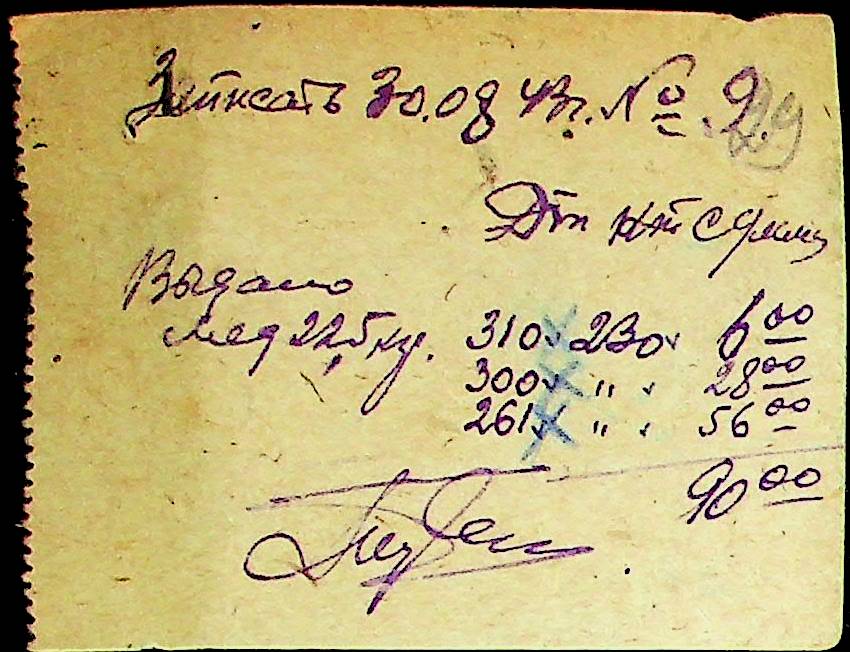 Записать 30.08 43г. № 9.
29
Выдано
мед 22,5 кг. 310 230 6 00
300 " 28 00
261 " 56 00
90 00